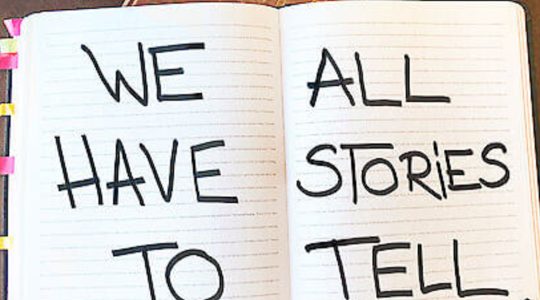 WE ALL
HAVE STORiES
TO TELL.